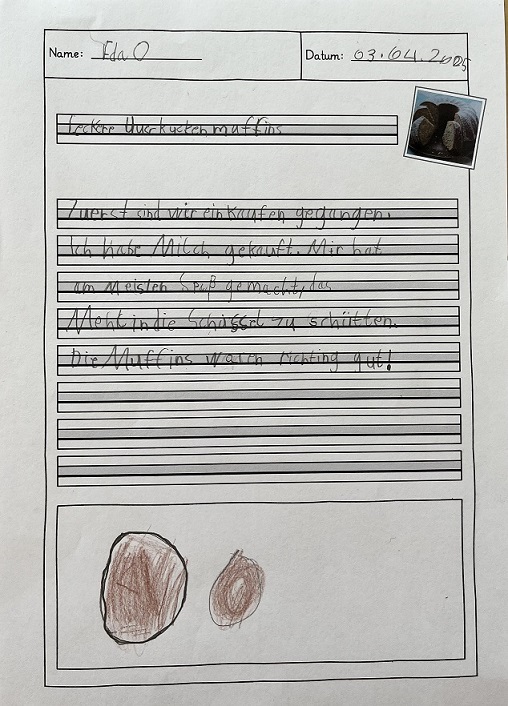 Name: Eda O
Datum: 03.04.2025
Leckere muffins
Zuerst sind wir einkaufen gegangen.
Ich habe Milch gekauft. Mir hat
am Meisten Spaß gemacht, das
Mehl in die Schüssel zu schütten.
Die Muffins waren richting gut!